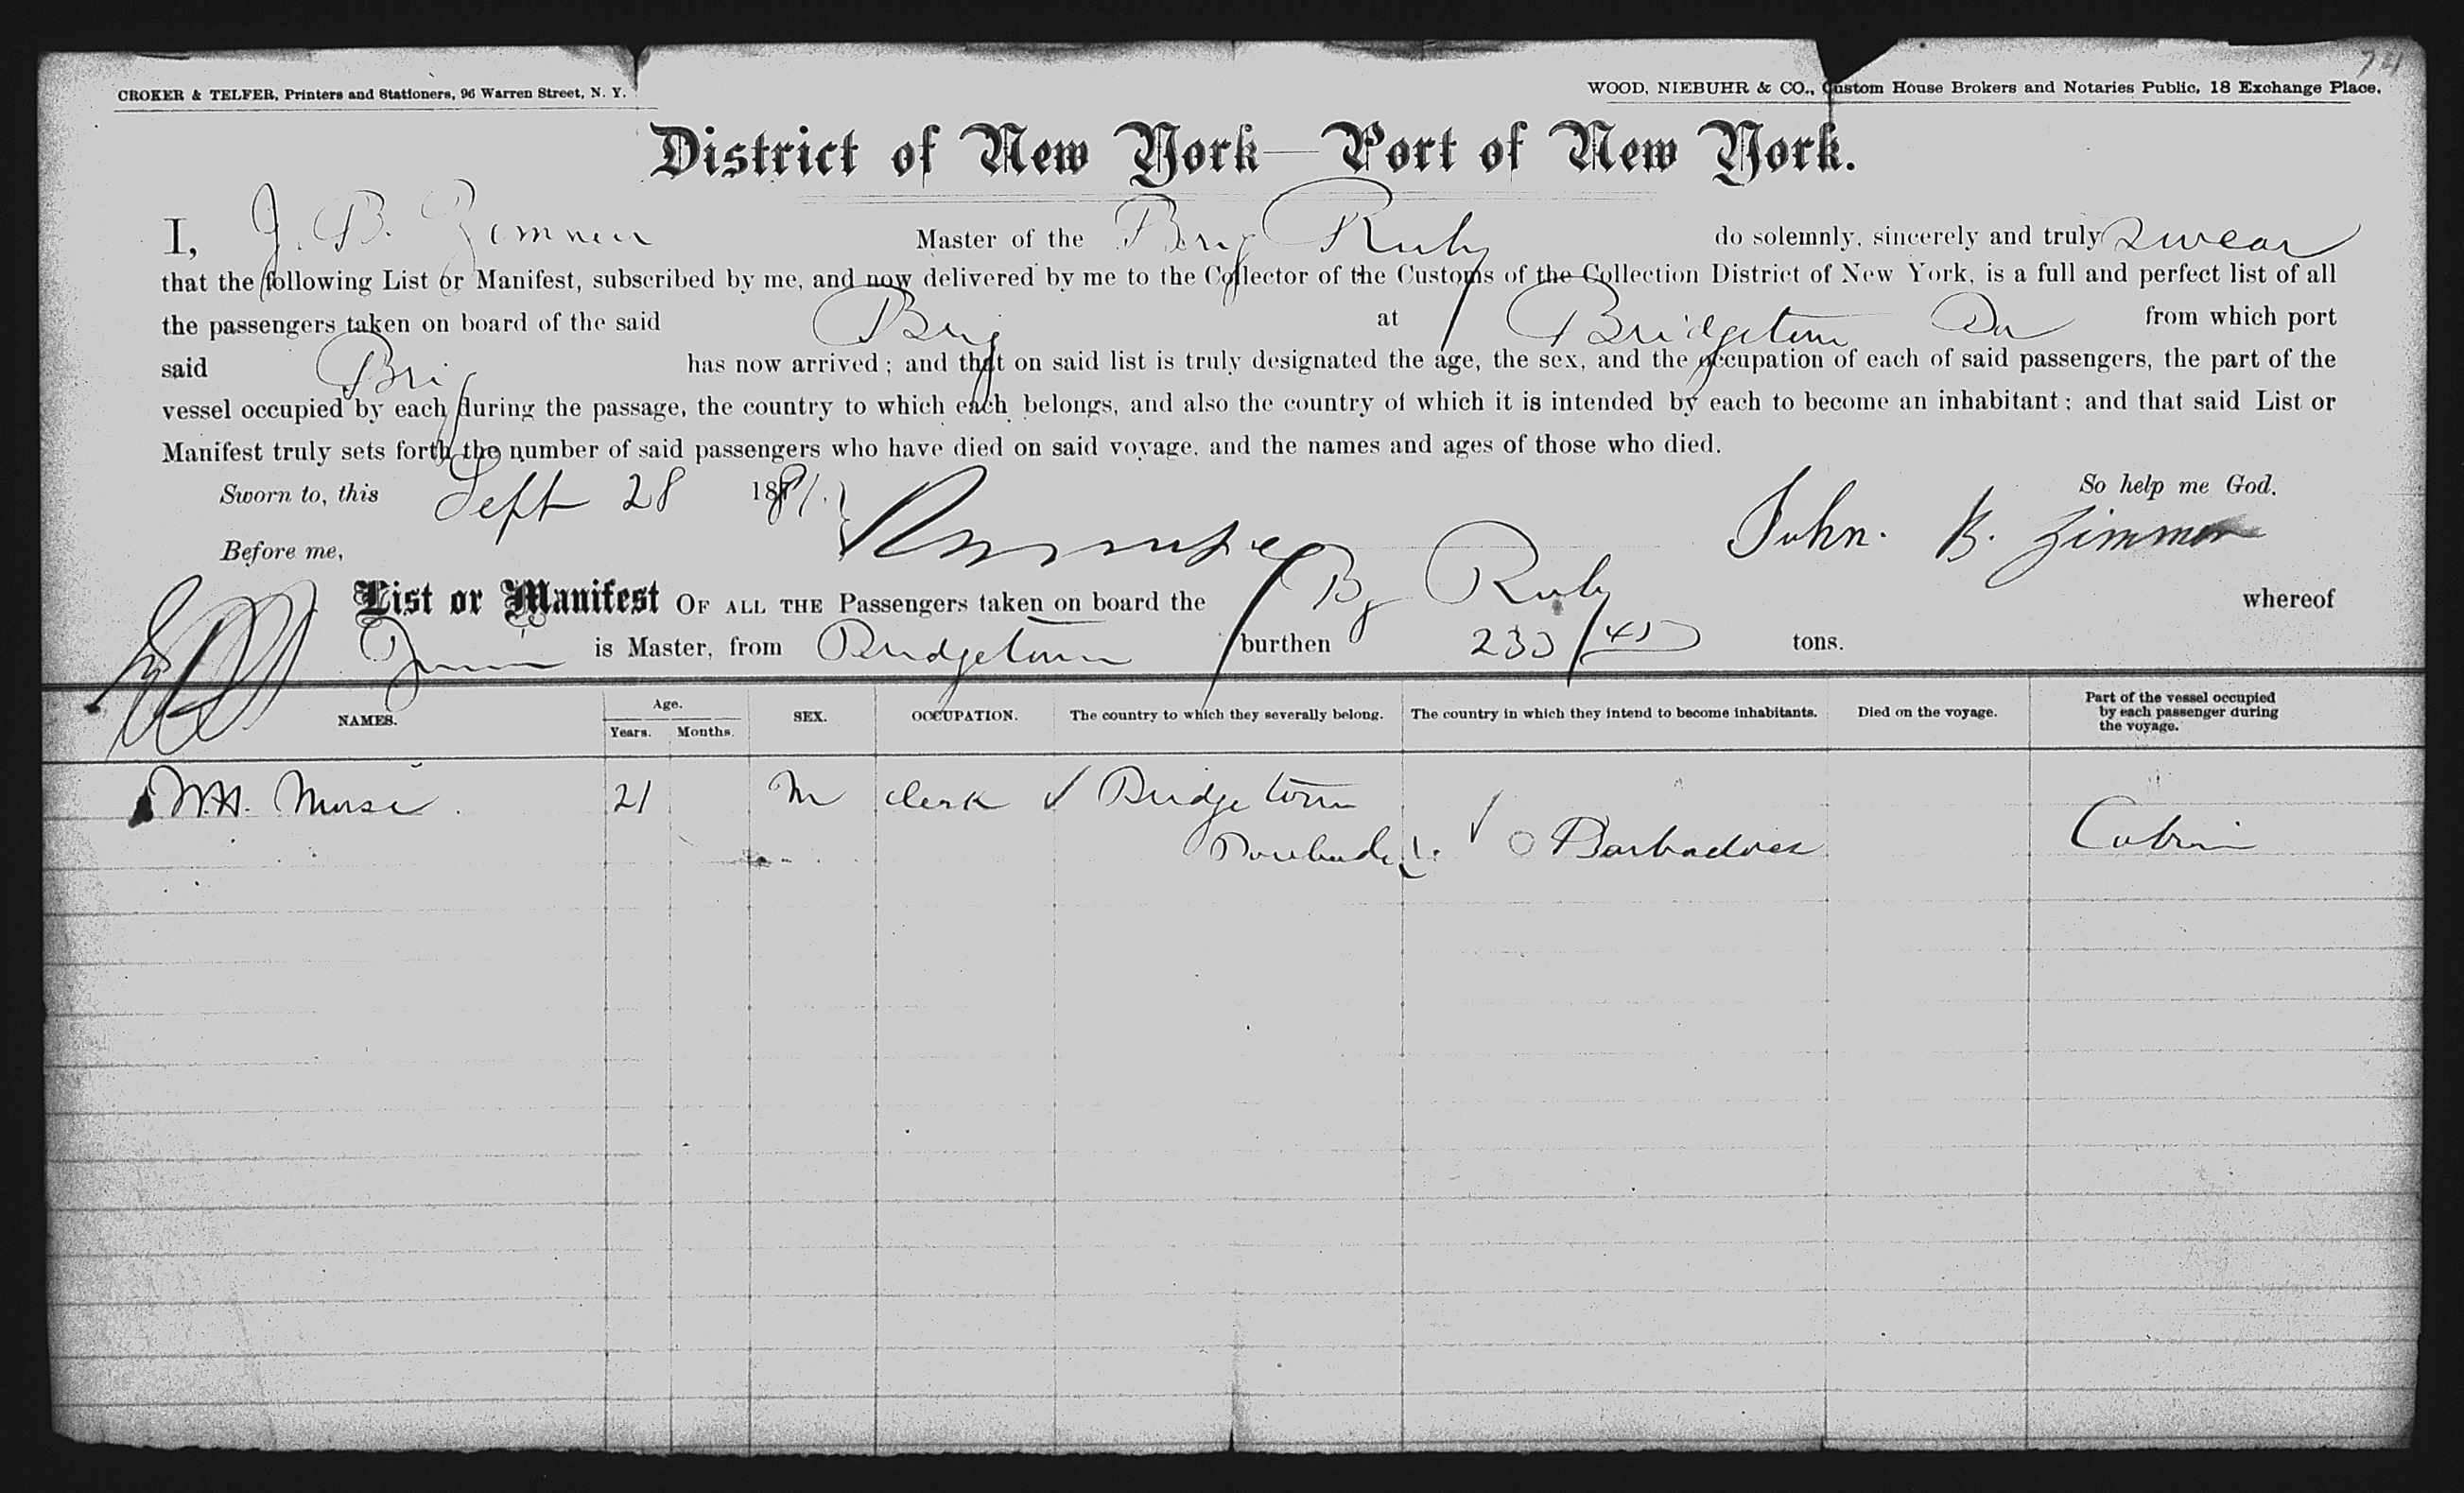 74
CROKER & TELFER, Printers and Stationers, 96 Warren Street, N. Y.
WOOD, NIEBUHR & CO., Custom House Brokers and Notaries Public, 18 Exchange Place.
District of New York—Port of New York.
I, J. B. Zimmer Master of the Brig Ruby do solemnly, sincerely and truly swear
that the following List or Manifest, subscribed by me, and now delivered by me to the Collector of the Customs of the Collection District of New York, is a full and perfect list of all
the passengers taken on board of the said Brig at Bridgetown from which port
said Brig has now arrived; and that on said list is truly designated the age, the sex, and the occupation of each of said passengers, the part of the
vessel occupied by each during the passage, the country to which each belongs, and also the country of which it is intended by each to become an inhabitant; and that said List or
Manifest truly sets forth the number of said passengers who have died on said voyage, and the names and ages of those who died.
Sworn to, this Sept 28 1881. So help me God.
Before me, John. B. Zimmer
List or Manifest OF ALL THE Passengers taken on board the Bg Ruby whereof
is Master, from Bridgetown burthen tons.
NAMES. Age. Years. Months. SEX. OCCUPATION. The country to which they severally belong. The country in which they intend to become inhabitants. Died on the voyage. Part of the vessel occupied by each passenger during the voyage.
W.H. 21 M Clerk Bridgetown
Barbadoes Cabin